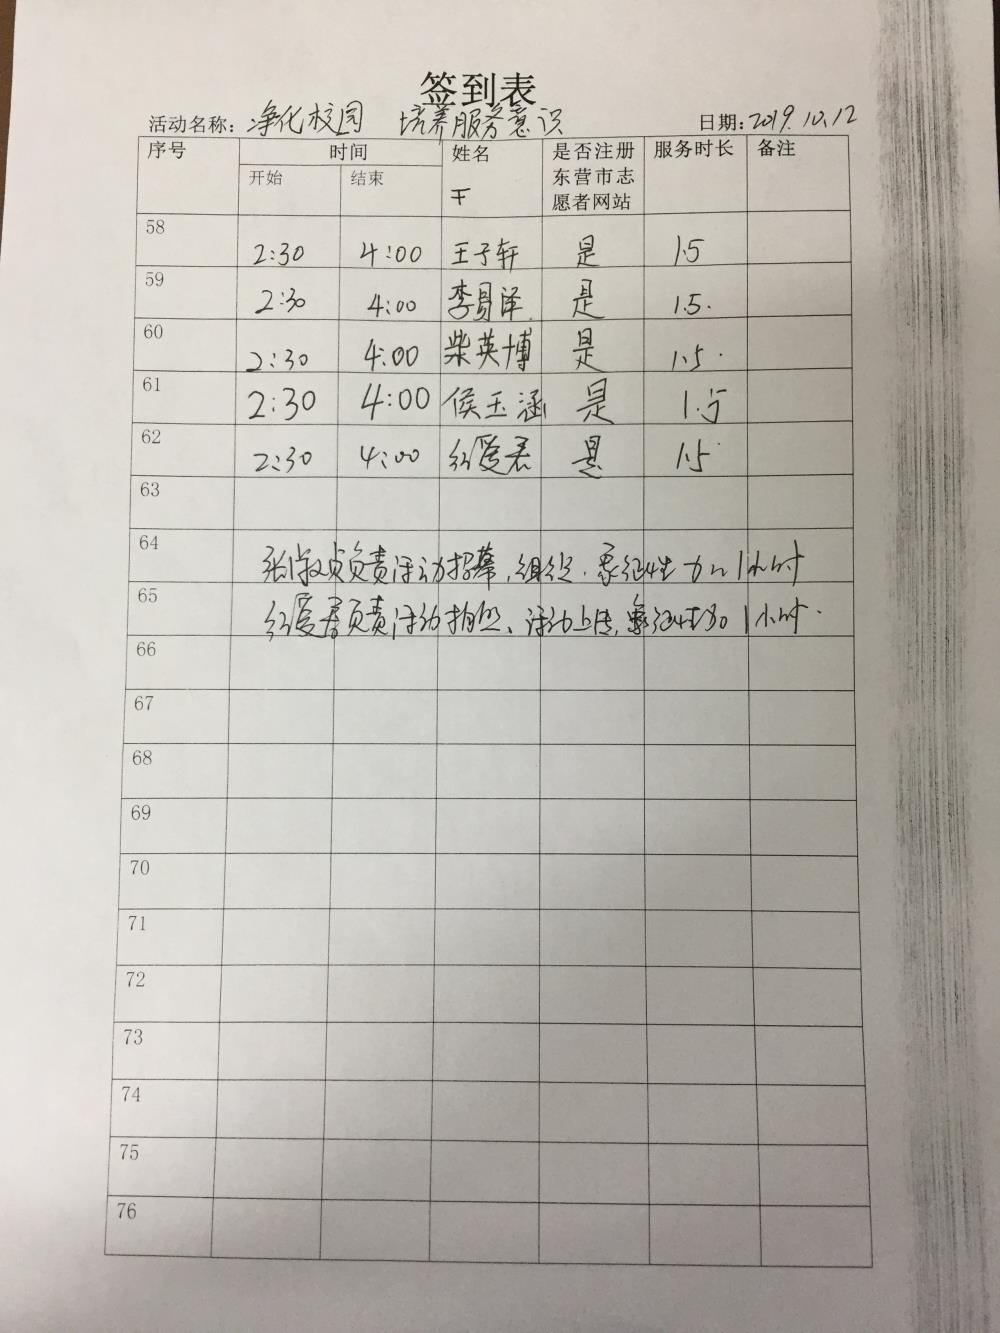 签到表
活动名称：净化校园 培养服务意识 日期：2019.10.12
序号 时间 姓名 是否注册东营市志愿者网站 服务时长 备注
开始 结束
58 2:30 4:00 王子轩 是 1.5
59 2:30 4:00 李昌泽 是 1.5
60 2:30 4:00 柴英博 是 1.5
61 2:30 4:00 侯玉涵 是 1.5
62 2:30 4:00 是 1.5
63
64 负责活动招募、组织，象征性加1小时
65 负责活动拍照、活动上传，象征性加1小时.
66
67
68
69
70
71
72
73
74
75
76